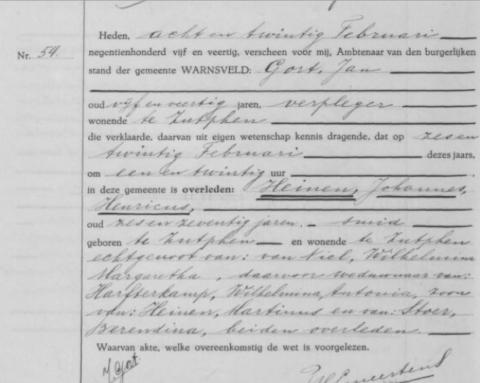 Heden, acht en twintig Februari
Nr. 54. negentienhonderd vijf en veertig, verscheen voor mij, Ambtenaar van den burgerlijken
stand der gemeente WARNSVELD: Gort, Jan
oud vijf en veertig jaren, verpleger
wonende te Zutphen
die verklaarde, daarvan uit eigen wetenschap kennis dragende, dat op zes en
twintig Februari dezes jaars,
om een en twintig uur
in deze gemeente is overleden: Heinen, Johannes,
Henricus,
oud zes en zeventig jaren. - smid
geboren te Zutphen en wonende te Zutphen
echtgenoot van: van Niel, Wilhelmina
Margaretha, daarvoor weduwnaar van:
Harfterkamp, Wilhelmina, Antonia, zoon
van: Heinen, Martinus en van: Stoer,
Berendina, beiden overleden
Waarvan akte, welke overeenkomstig de wet is voorgelezen.
J Gort.